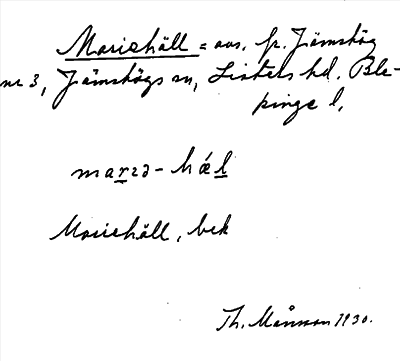 Mariehäll = avs. fr. Jämshög
nr 3, Jämshögs sn, Listers hd. Ble-
kinge l,
marɪə - hǽl
Mariehäll, bek
Th. Månsson 1930.